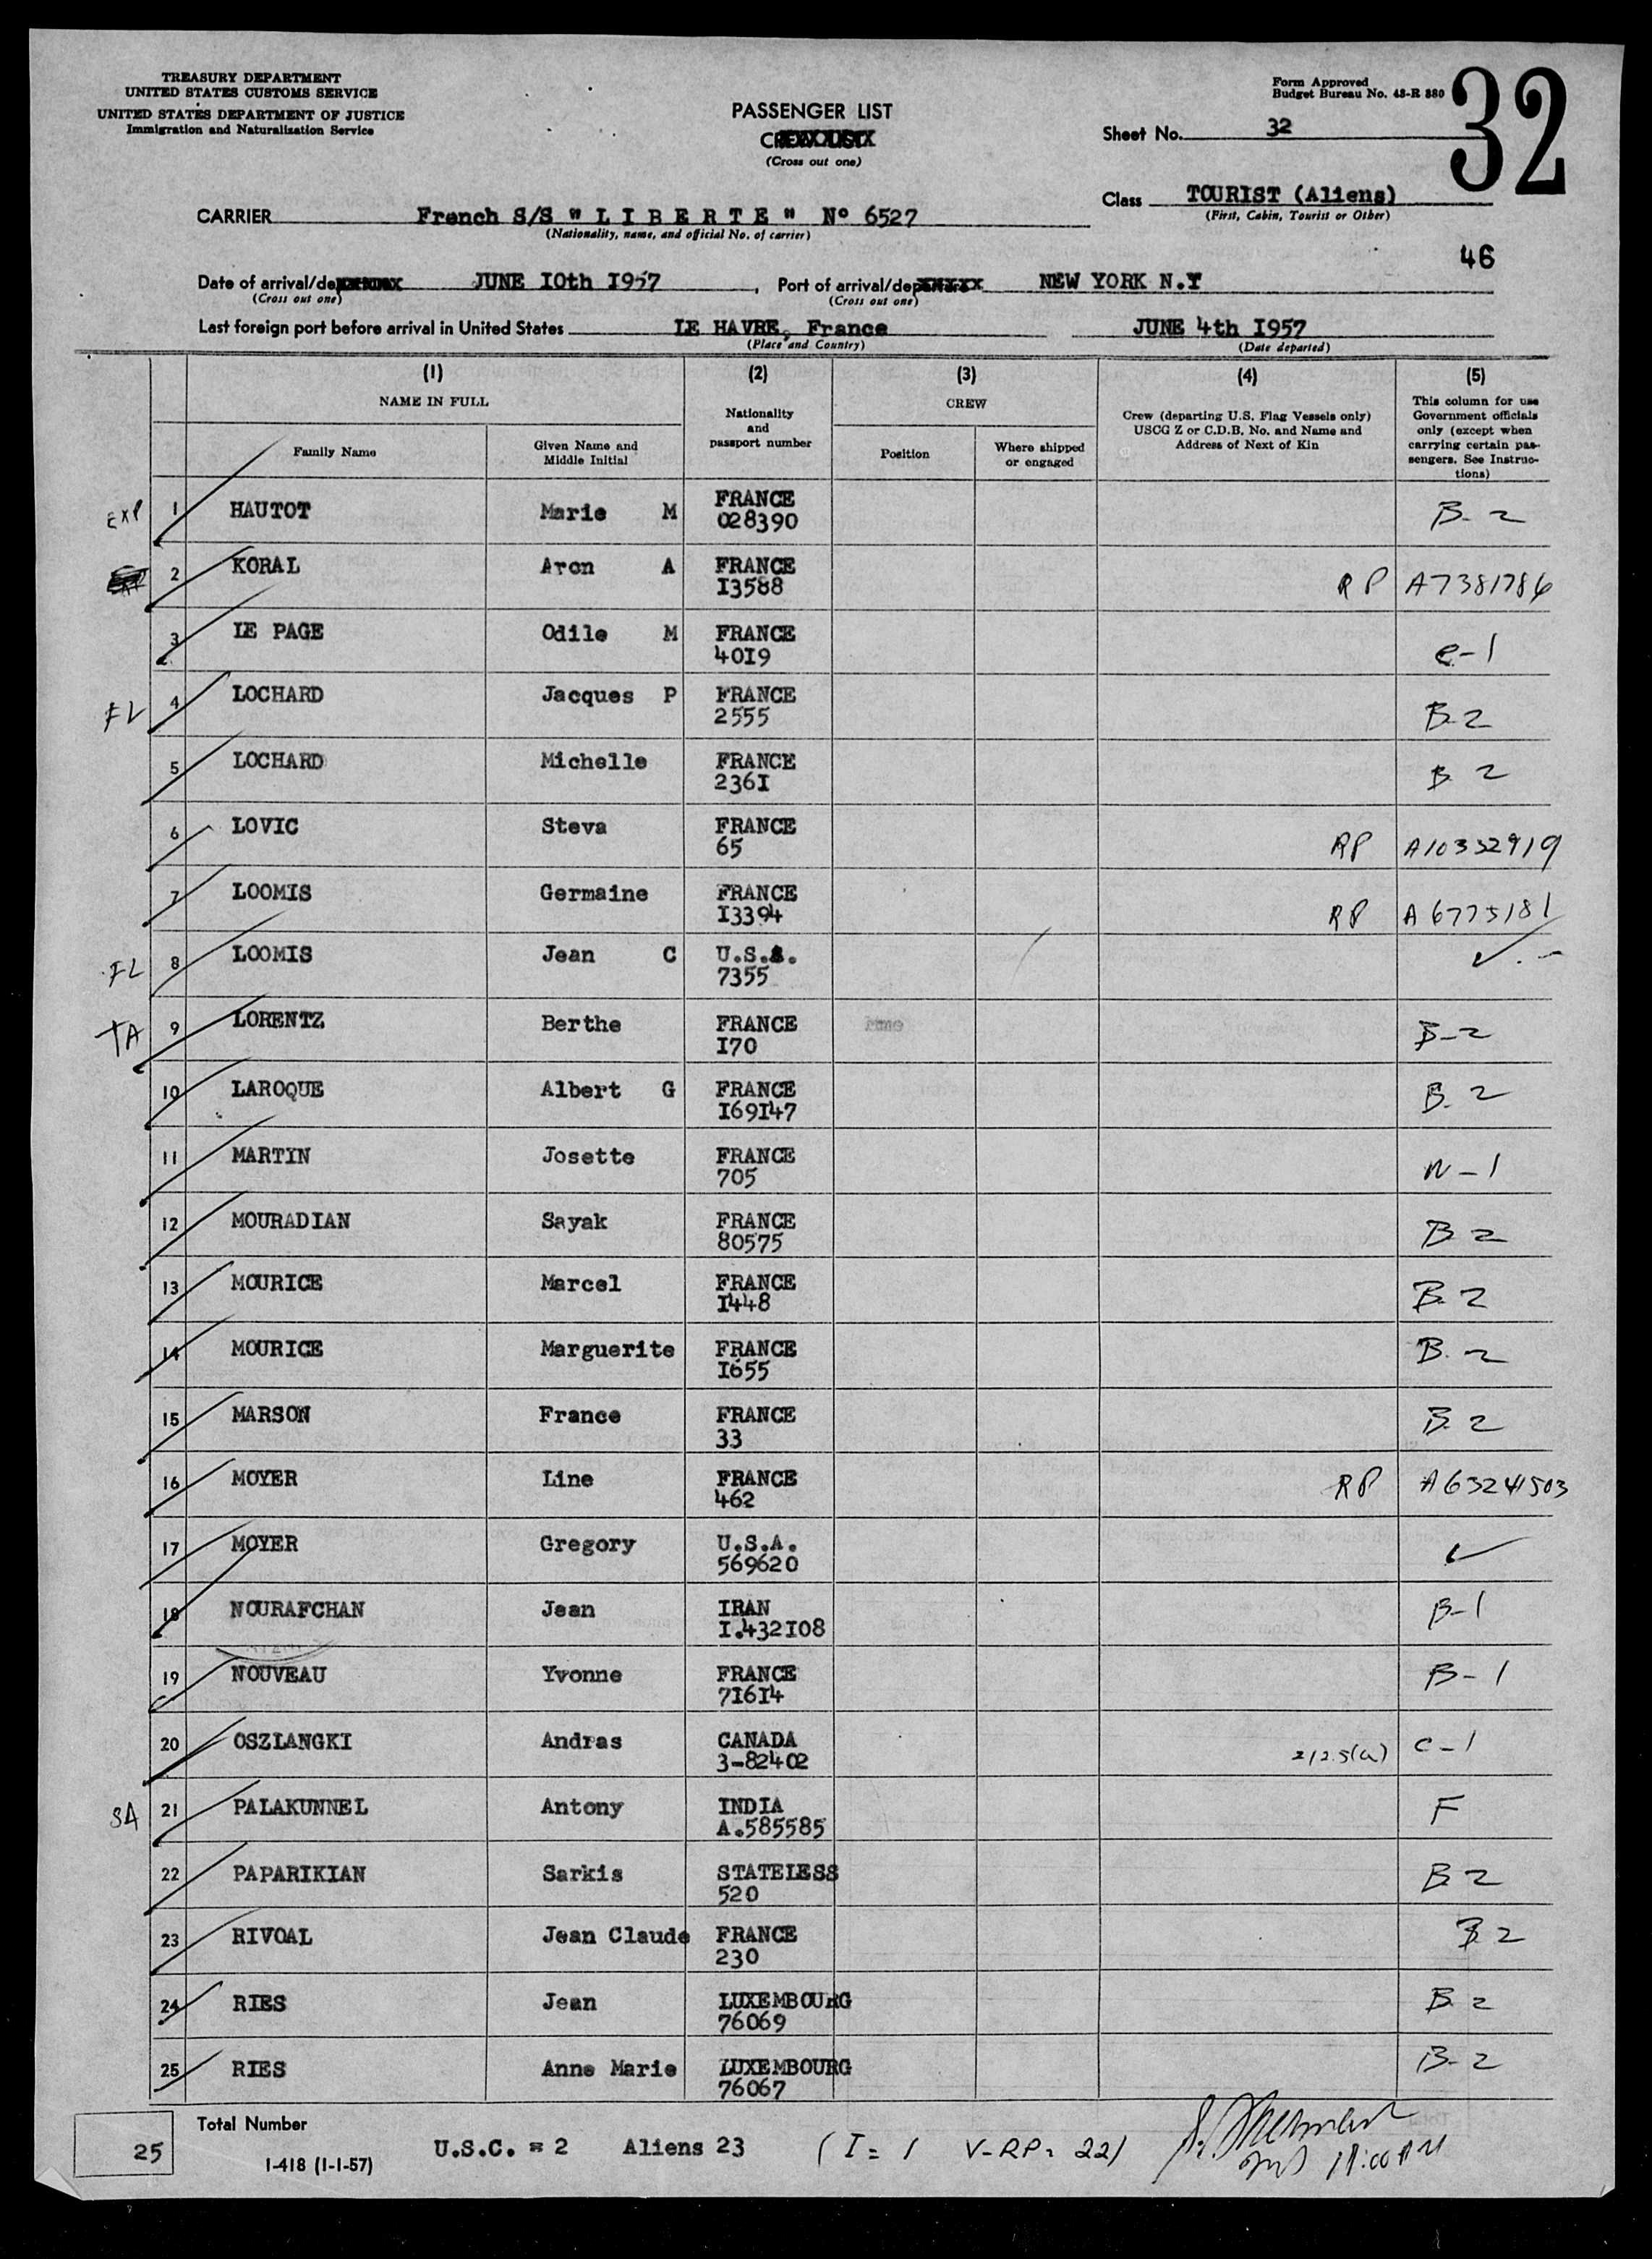 TREASURY DEPARTMENT
UNITED STATES CUSTOMS SERVICE
UNITED STATES DEPARTMENT OF JUSTICE
Immigration and Naturalization Service
Form Approved
Budget Bureau No. 43-R 380
32
PASSENGER LIST
(Cross out one)
Sheet No. 32
Class TOURIST (Aliens)
(First, Cabin, Tourist or Other)
CARRIER French S/S " L I B E R T E " N° 6527
(Nationality, name, and official No. of carrier)
46
Date of arrival/de JUNE I0th I957, Port of arrival/departure NEW YORK N.Y
(Cross out one) (Cross out one)
Last foreign port before arrival in United States LE HAVRE, France JUNE 4th I957
(Place and Country) (Date departed)
(1) (2) (3) (4) (5)
NAME IN FULL
Family Name
Given Name and Middle Initial
Nationality and passport number
CREW
Position
Where shipped or engaged
Crew (departing U.S. Flag Vessels only) USCG Z or C.D.B. No. and Name and Address of Next of Kin
This column for use Government officials only (except when carrying certain passengers. See Instructions)
EXP 1 HAUTOT Marie M FRANCE 028390 B-2
2 KORAL Aron A FRANCE I3588 RP A7381786
3 LE PAGE Odile M FRANCE 40I9 e-1
FL 4 LOCHARD Jacques P FRANCE 2555 B-2
5 LOCHARD Michelle FRANCE 236I B 2
6 LOVIC Steva FRANCE 65 RP A10332919
7 LOOMIS Germaine FRANCE I3394 RP A6775181
FL 8 LOOMIS Jean C U.S.A. 7355 ✓
TA 9 LORENTZ Berthe FRANCE I70 B-2
10 LAROQUE Albert G FRANCE I69I47 B-2
11 MARTIN Josette FRANCE 705 N-1
12 MOURADIAN Sayak FRANCE 80575 B 2
13 MOURICE Marcel FRANCE I448 B-2
14 MOURICE Marguerite FRANCE I655 B-2
15 MARSON France FRANCE 33 B 2
16 MOYER Line FRANCE 462 RP
17 MOYER Gregory U.S.A. 569620 ✓
18 NOURAFCHAN Jean IRAN I.432I08 B-1
19 NOUVEAU Yvonne FRANCE 7I6I4 B-1
20 OSZLANGKI Andras CANADA 3-82402 212.5(a) C-1
SA 21 PALAKUNNEL Antony INDIA A.585585 F
22 PAPARIKIAN Sarkis STATELESS 520 B 2
23 RIVOAL Jean Claude FRANCE 230 B 2
24 RIES Jean LUXEMBOURG 76069 B 2
25 RIES Anne Marie LUXEMBOURG 76067 B-2
25
Total Number
I-418 (1-1-57)
U.S.C. = 2 Aliens 23 (I = 1 V-RP = 22)